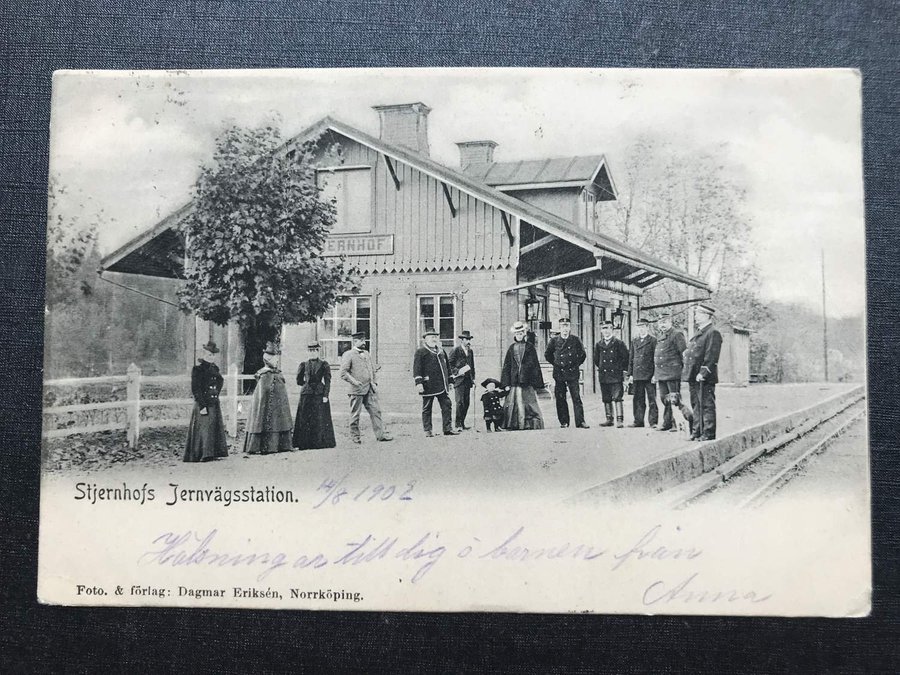 ERNHOF
Stjernhofs Jernvägsstation. 14/8 1902
Hälsningar till dig ô barnen från
Anna
Foto. & förlag: Dagmar Eriksén, Norrköping.